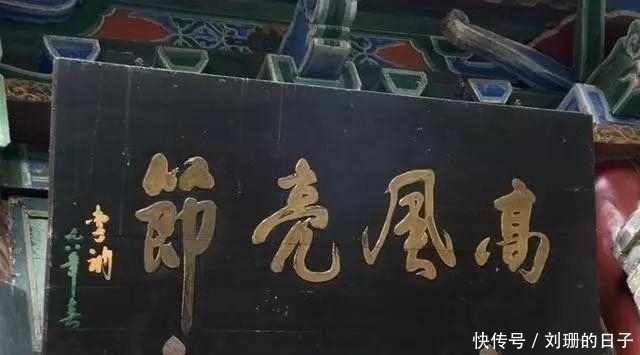 高風亮節
李
快传号 / 刘珊的日子